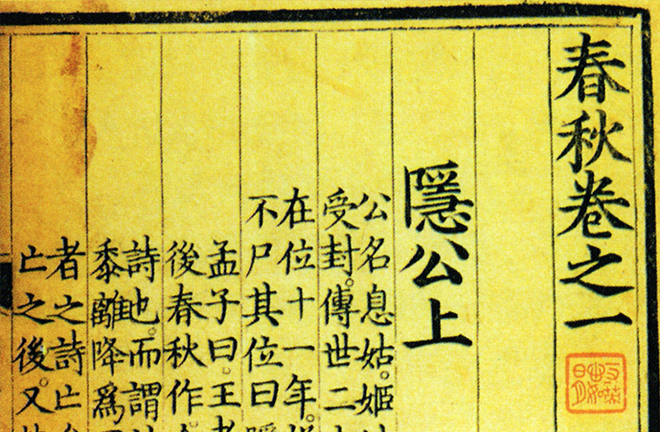 春秋卷之一
隱公上
公名息姑。姬
受封。傳世二
在位十一年。
不尸其位曰
孟子曰。王者
後春秋作。
詩也。而謂
黍離降爲
者之詩亡
亡之後。又